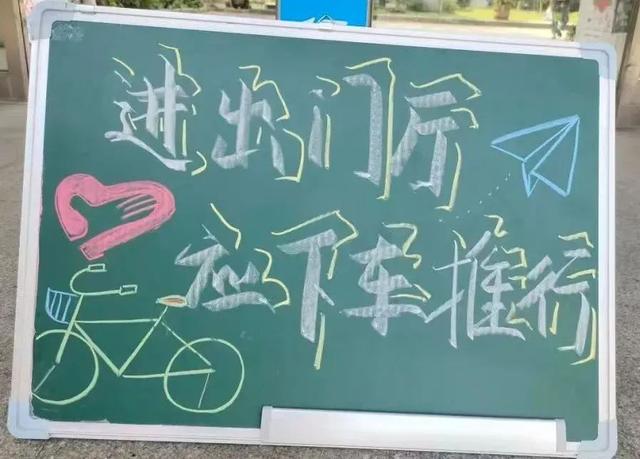 进出门厅
应下车推行